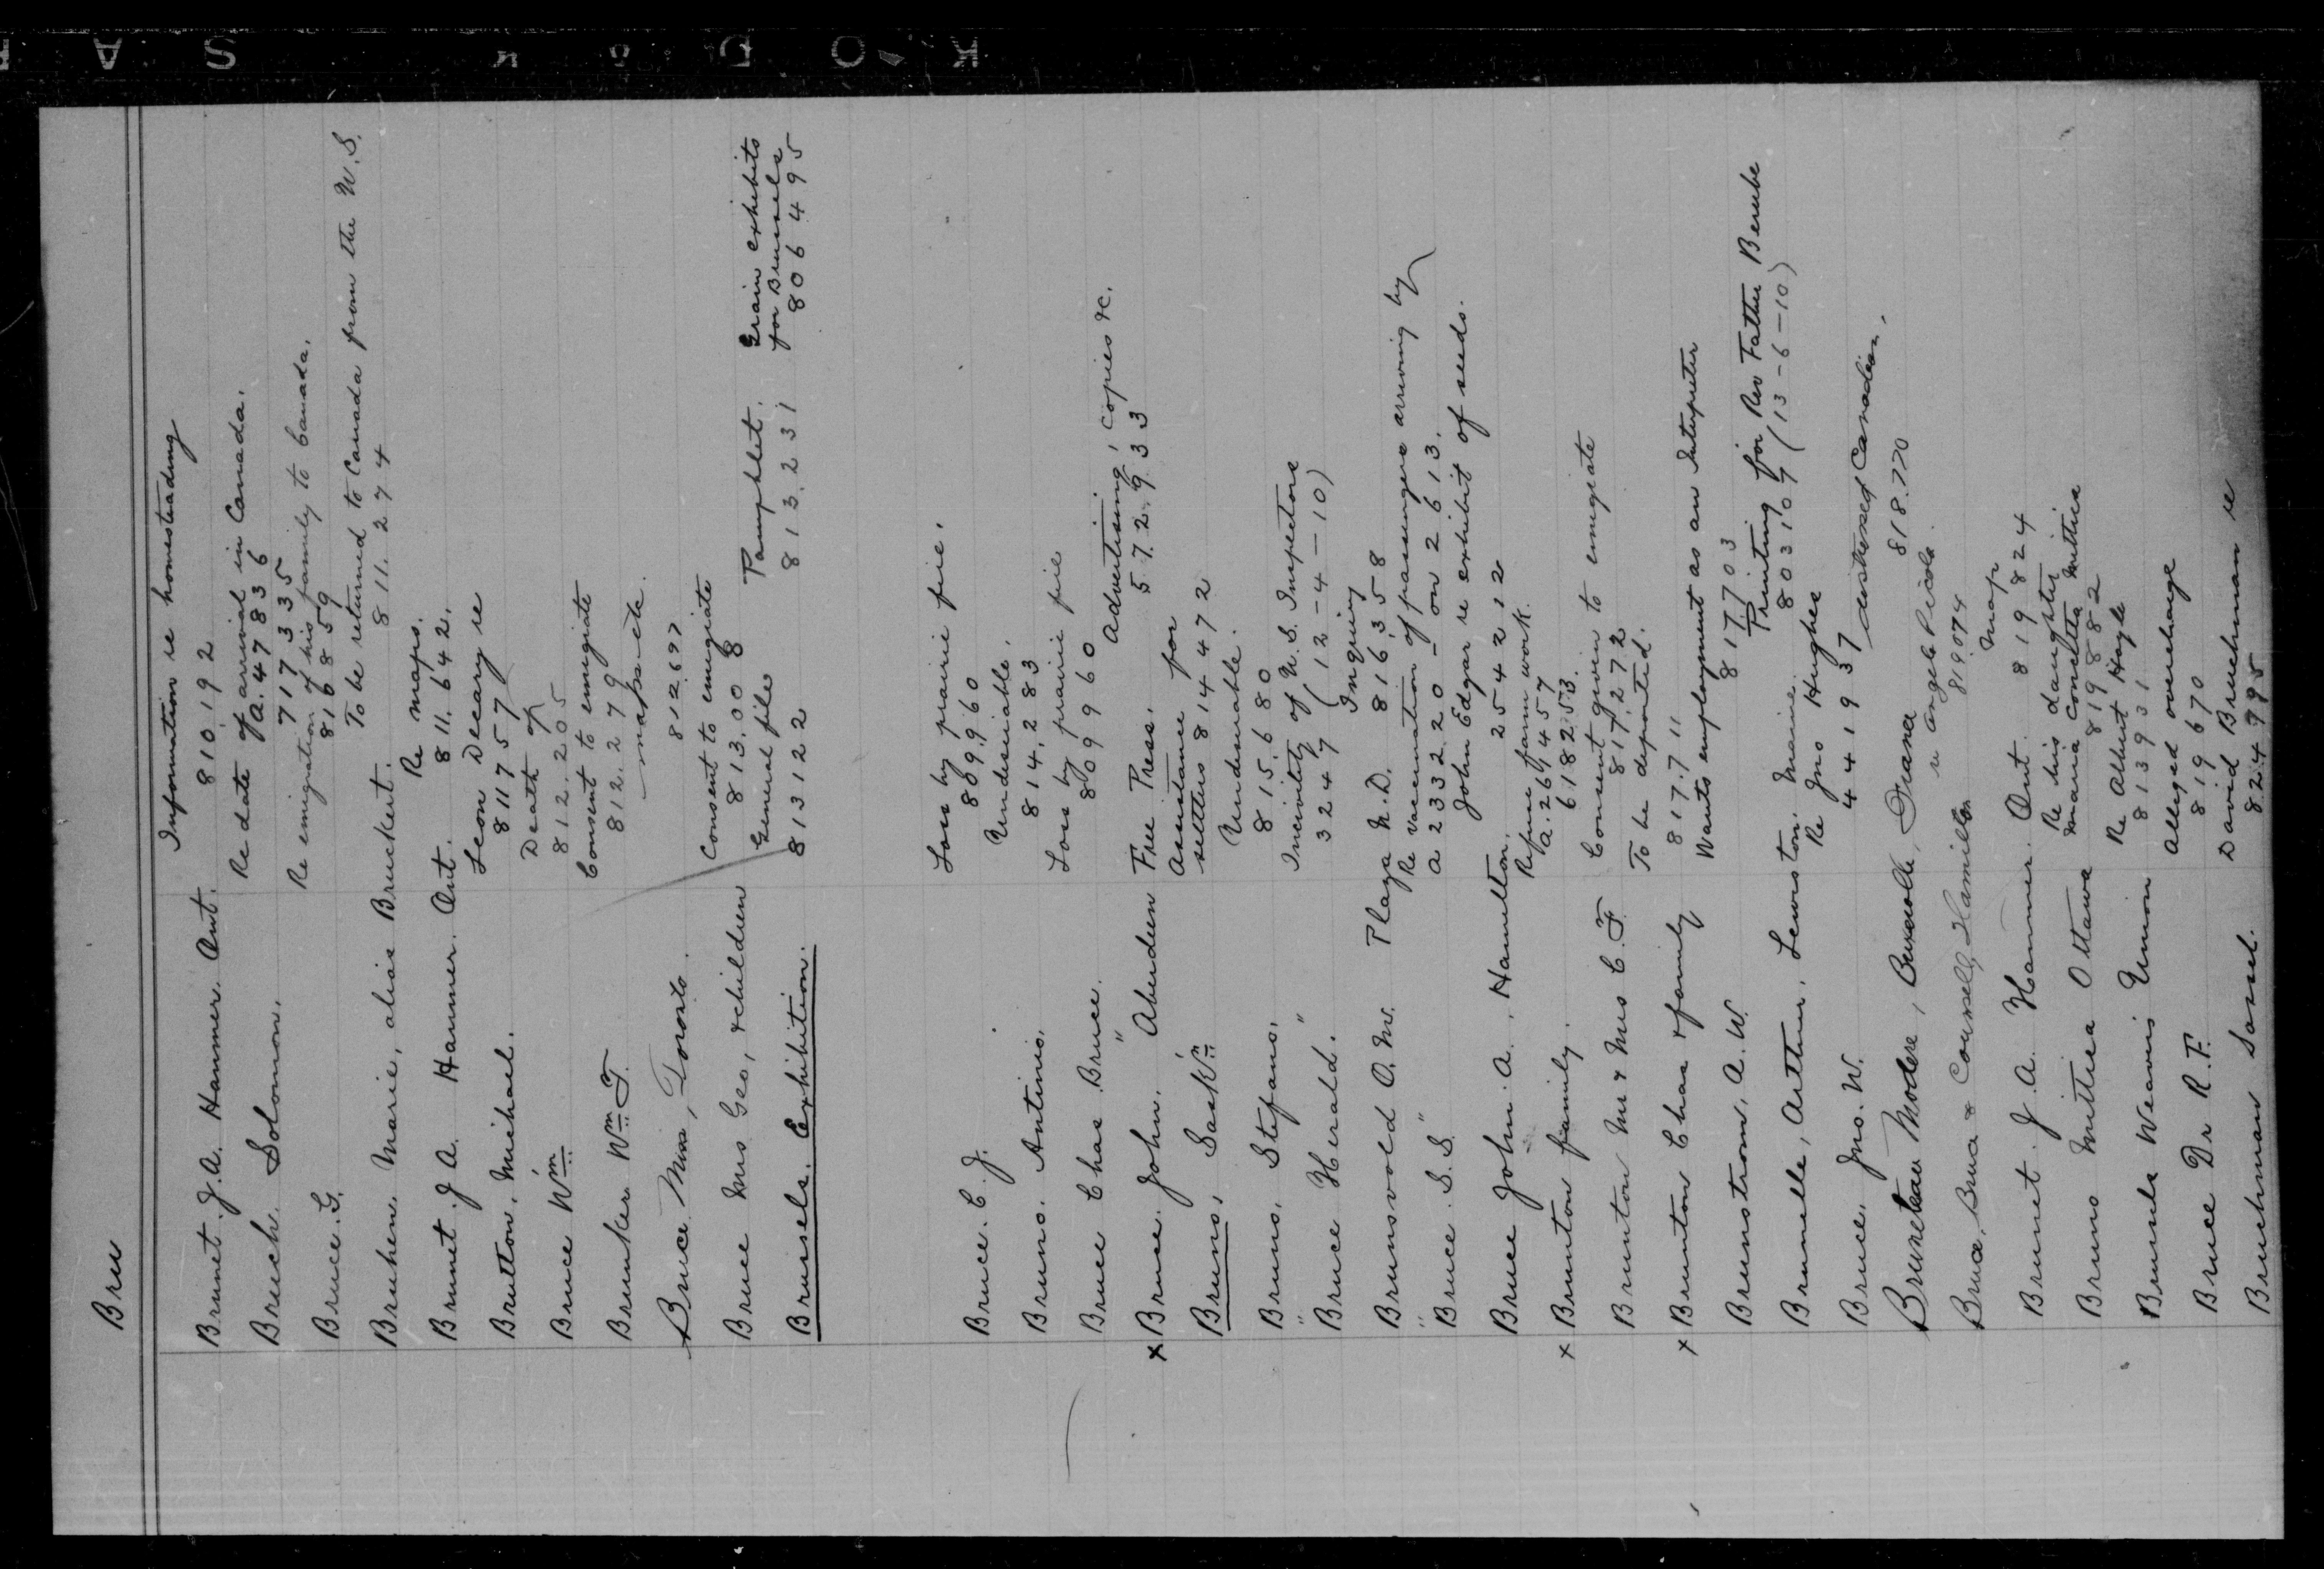 Bru
Brunet. J. A. Hanmer. Ont. Information re homesteading
810192
Bruch. Solomon. Re date of arrival in Canada.
a. 47836
717335
Bruce. G. Re emigration of his family to Canada.
816859
Bruhen. Marie, alias Bruckert. To be returned to Canada from the U.S.
811.274
Brunet. J A. Hanmer. Ont. Re maps.
811.642.
Brutton, Michael. Leon Decary re
811757
Bruce Wm Death of
812.205
Brunker Wm T. Consent to emigrate
812.279
Bruce Miss, Toronto. map
812697
Bruce Mrs Geo, & children Consent to emigrate
813.008
Brussels. Exhibition. General files Pamphlet. Grain exhibits
for Brussels
813122 813.231 806495
Bruce. C. J. Loss by prairie fire.
809960
Bruno. Antinio. Undesirable.
814.283
Bruce Chas Bruce. Loss by prairie fire
809960
x Bruce. John. "Aberdeen Free Press. Advertising, copies &c.
572.933
Bruno, Sask'n Assistance for
settlers 814472
Bruno, Stefano. Undesirable.
815.680
"Bruce Herald." Incivility of U.S. Inspectors
3247 (12-4-10)
Brunsvold O. M. Plaza N.D. Inquiry
816358
"Bruce S.S." Re vaccination of passengers arriving by
a 23320 - on 2613.
Bruce John A., Hamilton. John Edgar re exhibit of seeds.
254212
x Brunton family. Refuse farm work.
a. 269457
618253.
Brunton Mr & Mrs C. F. Consent given to emigrate
817,272
x Brunton Chas & family To be deported.
817.711
Brunstrom, A. W. Wants employment as an Interpreter
817703
Brunelle, Arthur, Lewiston. Maine. Printing for Rev Father Berube
803109 (13-6-10)
Bruce, Jno. W. Re Jno Hughes
441937 distressed Canadian.
Bruneteau Modere, Buxerolle, France 818.770
Bruce, Bruce & Counsell, Hamilton re
819074
Brunet J. A. Hanmer. Ont. Map
819824
Bruno Mittica Ottawa Re his daughter
Maria Concetta Mittica
819882
Brunls Weavers Union Re Albert Hoyle
813931
Bruce Dr R. F. Alleged overcharge
819670
Bruchman Saml. David Bruchman re
824995